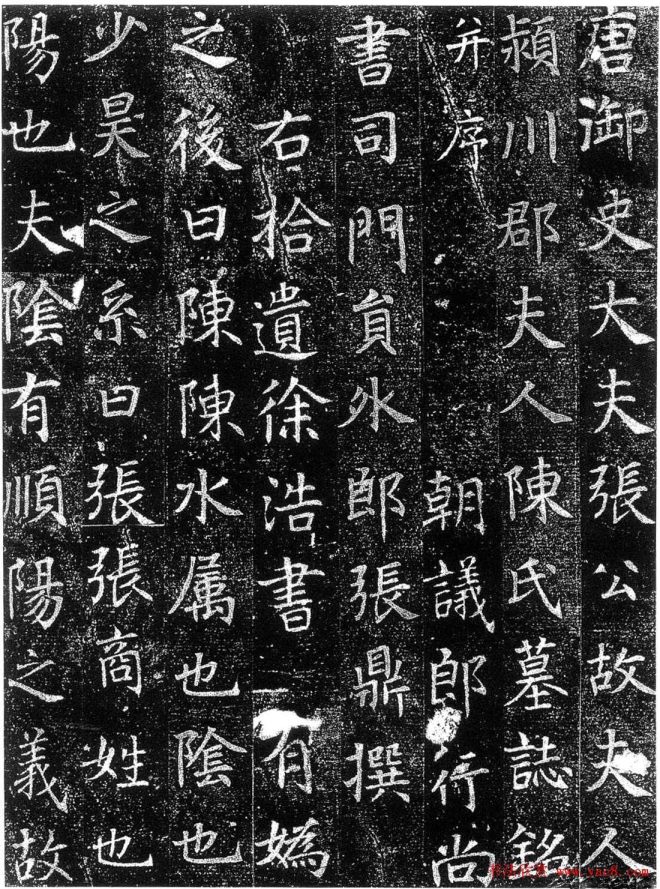 唐御史大夫張公故夫人
潁川郡夫人陳氏墓誌銘
并序 朝議郎行尚
書司門員外郎張鼎撰
右拾遺徐浩書 有媯
之後曰陳陳水属也陰也
少昊之系曰張張商姓也
陽也夫陰有順陽之義故
www.yac8.com